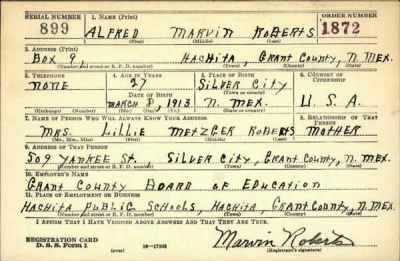 SERIAL NUMBER 1. NAME (Print) ORDER NUMBER
899 ALFRED MARVIN ROBERTS 1872
(First) (Middle) (Last)
3. ADDRESS (Print)
BOX 9, HACHITA, GRANT COUNTY, N. MEX.
(Number and street or R. F. D. number) (Town) (County) (State)
3. TELEPHONE 4. AGE IN YEARS 5. PLACE OF BIRTH 6. COUNTRY OF CITIZENSHIP
NONE 27 SILVER CITY
DATE OF BIRTH (Town or county)
MARCH 8, 1913 N. MEX. U. S. A.
(Exchange) (Number) (Mo.) (Day) (Yr.) (State or country)
7. NAME OF PERSON WHO WILL ALWAYS KNOW YOUR ADDRESS 8. RELATIONSHIP OF THAT PERSON
MRS. LILLIE METZGER ROBERTS MOTHER
(Mr., Mrs., Miss) (First) (Middle) (Last)
9. ADDRESS OF THAT PERSON
509 YANKEE ST., SILVER CITY, GRANT COUNTY, N. MEX.
(Number and street or R. F. D. number) (Town) (County) (State)
10. EMPLOYER'S NAME
GRANT COUNTY BOARD OF EDUCATION
11. PLACE OF EMPLOYMENT OR BUSINESS
HACHITA PUBLIC SCHOOLS, HACHITA, GRANT COUNTY, N. MEX.
(Number and street or R. F. D. number) (Town) (County) (State)
I AFFIRM THAT I HAVE VERIFIED ABOVE ANSWERS AND THAT THEY ARE TRUE.
REGISTRATION CARD Marvin Roberts
D. S. S. Form 1 (over) 16—17105 (Registrant's signature)